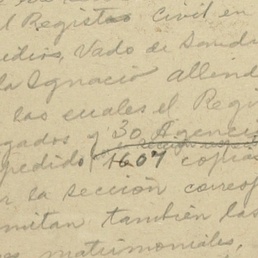 el Registro Civil en
udios, Vado de Sandr
la Ignacio Allend
las cuales el Regi
gados y 30 Agencia
pedido 1607 copia
r la sección corresp
mitan también las
es matrimoniales,